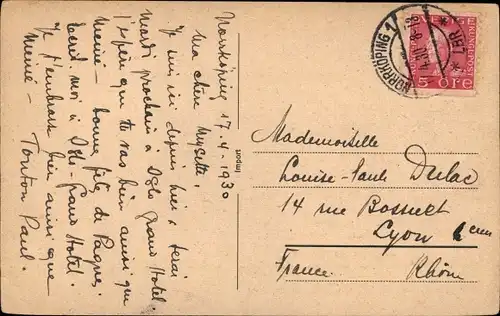 Norrköping 17-4-1930
Ma chère Mysette.
Je suis ici depuis hier & serai
mardi prochain à Oslo Grand Hotel.
J'espère que tu vas bien ainsi que
Mémé - bonne fête de Pâques.
Ecris moi à Oslo-Grand Hotel.
Je t'embrasse bien ainsi que
Mémé - Tonton
Paul.
Import
NORRKÖPING 1
SVERIGE
5 ÖRE
Mademoiselle
Louise-Paule Dulac
14 rue Bossuet
Lyon 6 eme
France Rhône